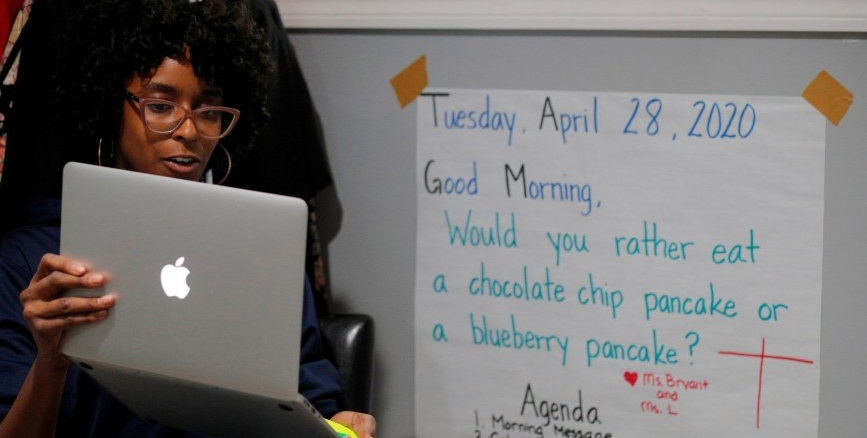 Tuesday, April 28, 2020
Good Morning,
Would you rather eat
a chocolate chip pancake or
a blueberry pancake?
Ms. Bryant
and
Ms. L
Agenda
1. Morning Message